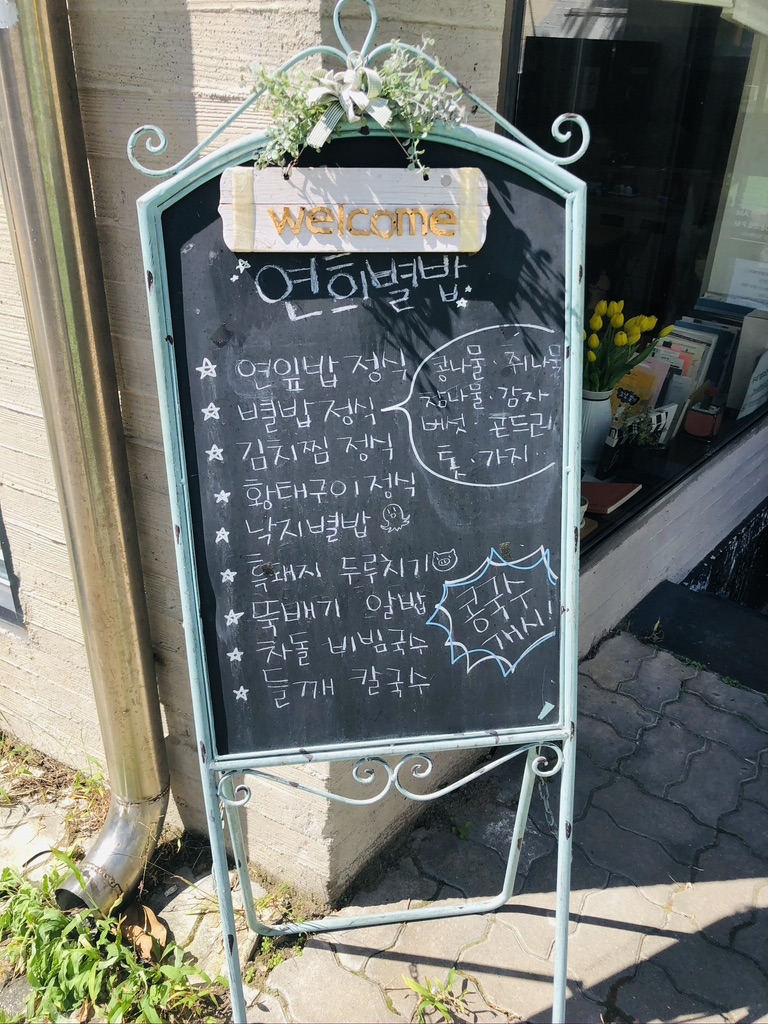 welcome
연희별밥
연잎밥 정식
별밥 정식
콩나물 · 취나물
참나물 · 감자
버섯 · 곤드레
톳 · 가지 ..
김치찜 정식
황태구이 정식
낙지별밥
흑돼지 두루치기
뚝배기 알밥
차돌 비빔국수
들깨 칼국수
콩국수
개시!